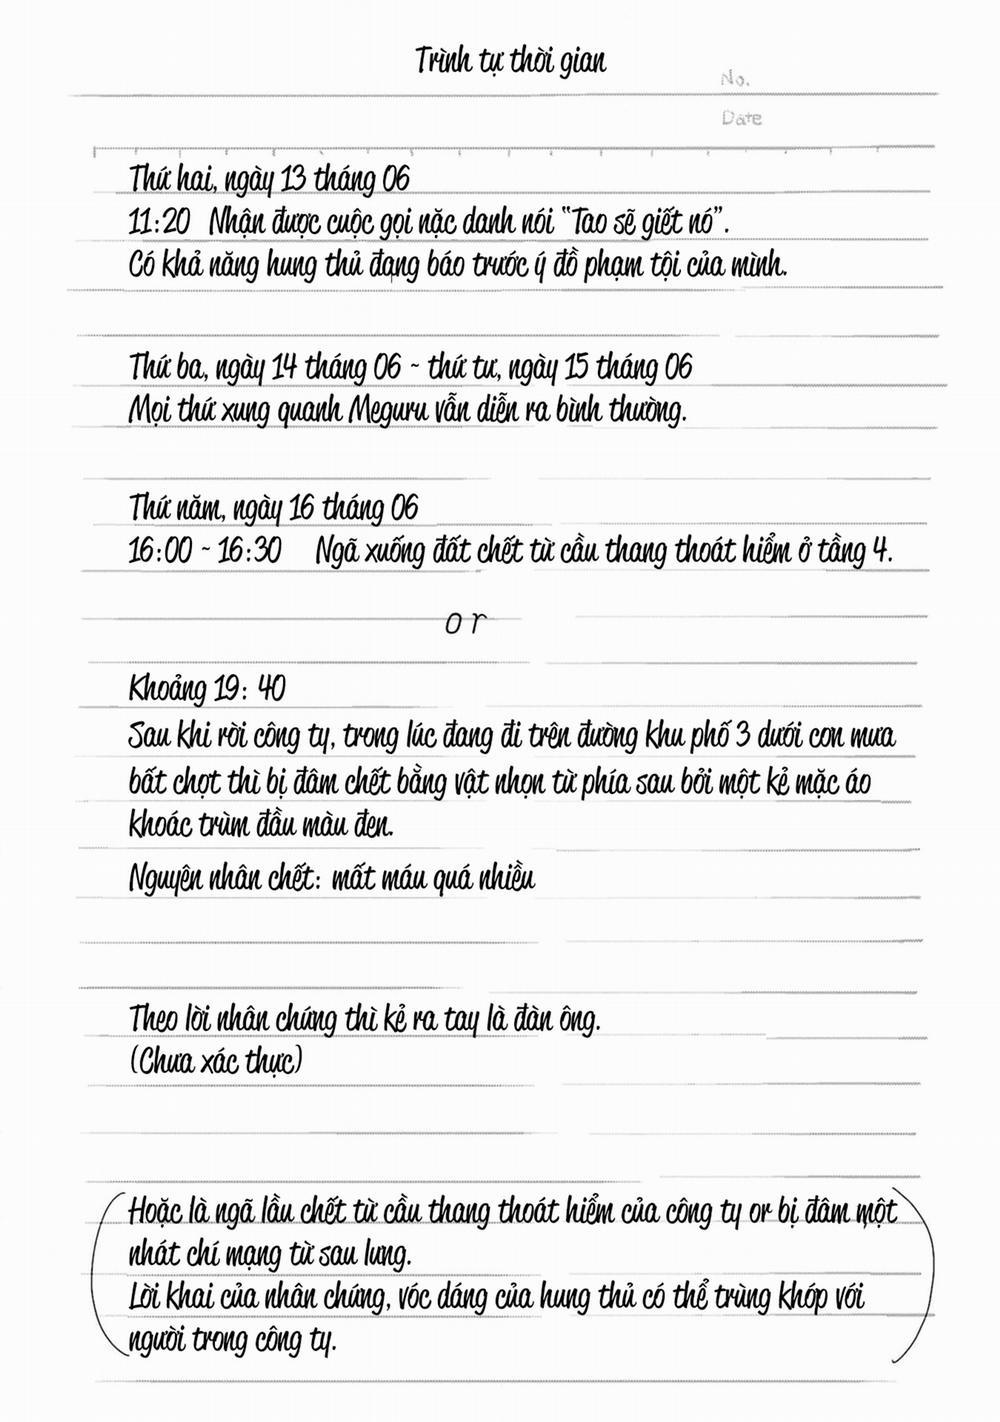 Trình tự thời gian
No.
Date
Thứ hai, ngày 13 tháng 06
11:20 Nhận được cuộc gọi nặc danh nói “Tao sẽ giết nó”.
Có khả năng hung thủ đang báo trước ý đồ phạm tội của mình.
Thứ ba, ngày 14 tháng 06 ~ thứ tư, ngày 15 tháng 06
Mọi thứ xung quanh Meguru vẫn diễn ra bình thường.
Thứ năm, ngày 16 tháng 06
16:00 ~ 16:30 Ngã xuống đất chết từ cầu thang thoát hiểm ở tầng 4.
or
Khoảng 19: 40
Sau khi rời công ty, trong lúc đang đi trên đường khu phố 3 dưới cơn mưa
bất chợt thì bị đâm chết bằng vật nhọn từ phía sau bởi một kẻ mặc áo
khoác trùm đầu màu đen.
Nguyên nhân chết: mất máu quá nhiều
Theo lời nhân chứng thì kẻ ra tay là đàn ông.
(Chưa xác thực)
Hoặc là ngã lầu chết từ cầu thang thoát hiểm của công ty or bị đâm một
nhát chí mạng từ sau lưng.
Lời khai của nhân chứng, vóc dáng của hung thủ có thể trùng khớp với
người trong công ty.